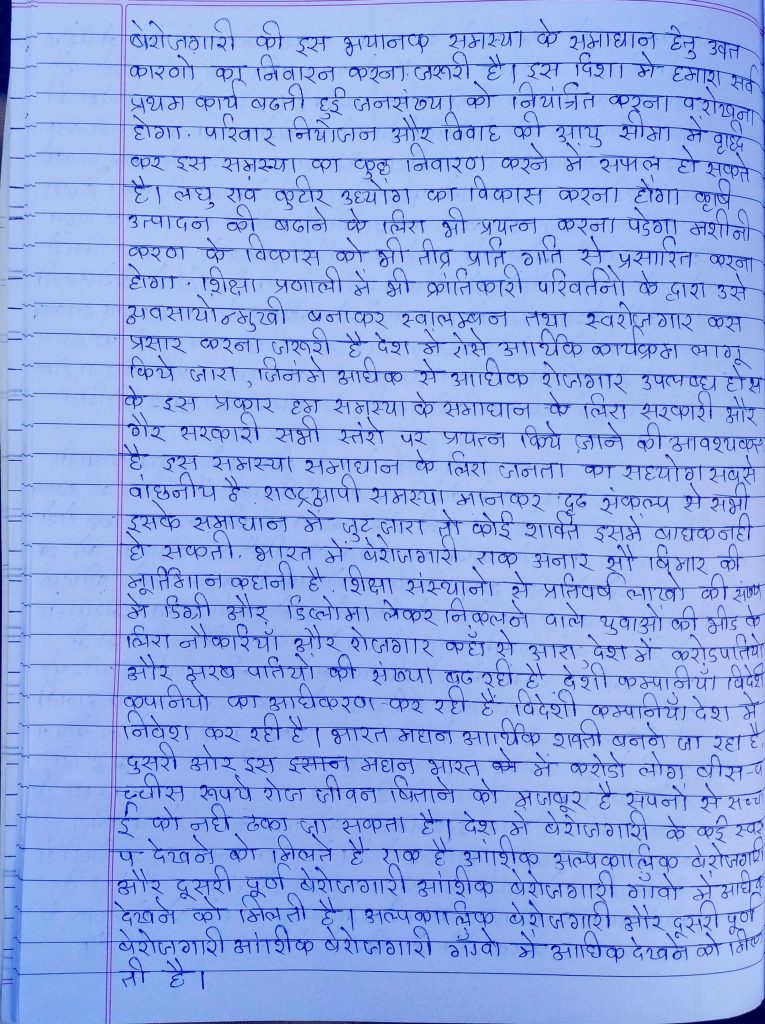 बेरोजगारी की इस भयानक समस्या के समाधान हेतु उक्त
कारणो का निवारन करना जरूरी है। इस दिशा मे हमारा सर्व
प्रथम कार्य बढती हुई जनसंख्या को नियंत्रित करना व रोखना
होगा. परिवार नियोजन और विवाह की आयु सीमा में वृध्दि
कर इस समस्या का कुछ निवारण करने में सफल हो सकते
है। लघु राव कुटीर उध्योग का विकास करना होगा कृषि
उत्पादन की बढाने के लिरा भी प्रयत्न करना पडेगा मशीनी
करण के विकास को भी तीव्र प्रति गति से प्रसारित करना
होगा. शिक्षा प्रणाली में भी क्रांतिकारी परिवर्तनो के द्वारा उसे
व्यवसायोन्मुखी बनाकर स्वालम्बन तथा स्वरोजगार कस
प्रसार करना जरूरी है देश में रोसे आर्थिक कार्यक्रम लागू
किये जारा, जिनमे अधिक से अधिक रोजगार उपलब्ध हो स
के इस प्रकार हम समस्या के समाधान के लिरा सरकारी और
गैर सरकारी सभी स्तंरो पर प्रयत्न किये जाने की आवश्यकता
है इस समस्या समाधान के लिरा जनता का सहयोग सबसे
वांछनीय है. राष्ट्रव्यापी समस्या मानकर दृढ संकल्प से सभी
इसके समाधान मे जुट जारा तो कोई शक्ति इसमे बाधक नही
हो सकती. भारत में बेरोजगारी राक अनार सौ बिमार की
मूर्तिमान कहानी है शिक्षा संस्थानो से प्रतिवर्ष लाखो की संख्या
मे डिग्री और डिप्लोमा लेकर निकलने वाले युवाओं की भीड के
लिरा नौकरियाँ और रोजगार कहाँ से आरा देश में करोडपतियो
और अरब पतियों की संख्या बढ रही है देशी कम्पानीयाँ विदेशी
कंपानियो का अधिकरण कर रही है विदेशी कम्पानीयाँ देश मे
निवेश कर रही है। भारत महान आर्थिक शक्ती बनने जा रहा है.
दुसरी ओर इस इसमन महान भारत में करोडो लोग बीस-प
च्चीस रूपये रोज जीवन बिताने को मजबूर है सपनों से सच्चा
ई को नही ढका जा सकता है। देश मे बेरोजगारी के कई स्वरु
प देखने को मिलते है राक है आंशिक अल्पकालिक बेरोजगारी
और दूसरी पूर्ण बेरोजगारी आंशिक बेरोजगारी गावो में अधिक
देखने को मिलती है। अल्पकालिक बेरोजगारी और दूसरी पूर्ण
बेरोजगारी आंशिक बेरोजगारी गावो मे अधिक देखने को मिल
ती है।